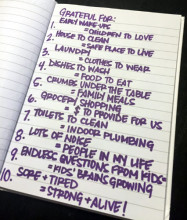 GRATEFUL FOR:
1. EARLY WAKE-UPS
= CHILDREN TO LOVE
2. HOUSE TO CLEAN
= SAFE PLACE TO LIVE
3. LAUNDRY
= CLOTHES TO WEAR
4. DISHES TO WASH
= FOOD TO EAT
5. CRUMBS UNDER THE TABLE
= FAMILY MEALS
6. GROCERY SHOPPING
= $ TO PROVIDE FOR US
7. TOILETS TO CLEAN
= INDOOR PLUMBING
8. LOTS OF NOISE
= PEOPLE IN MY LIFE
9. ENDLESS QUESTIONS FROM KIDS
= KIDS' BRAINS GROWING
10. SORE + TIRED
= STRONG + ALIVE!